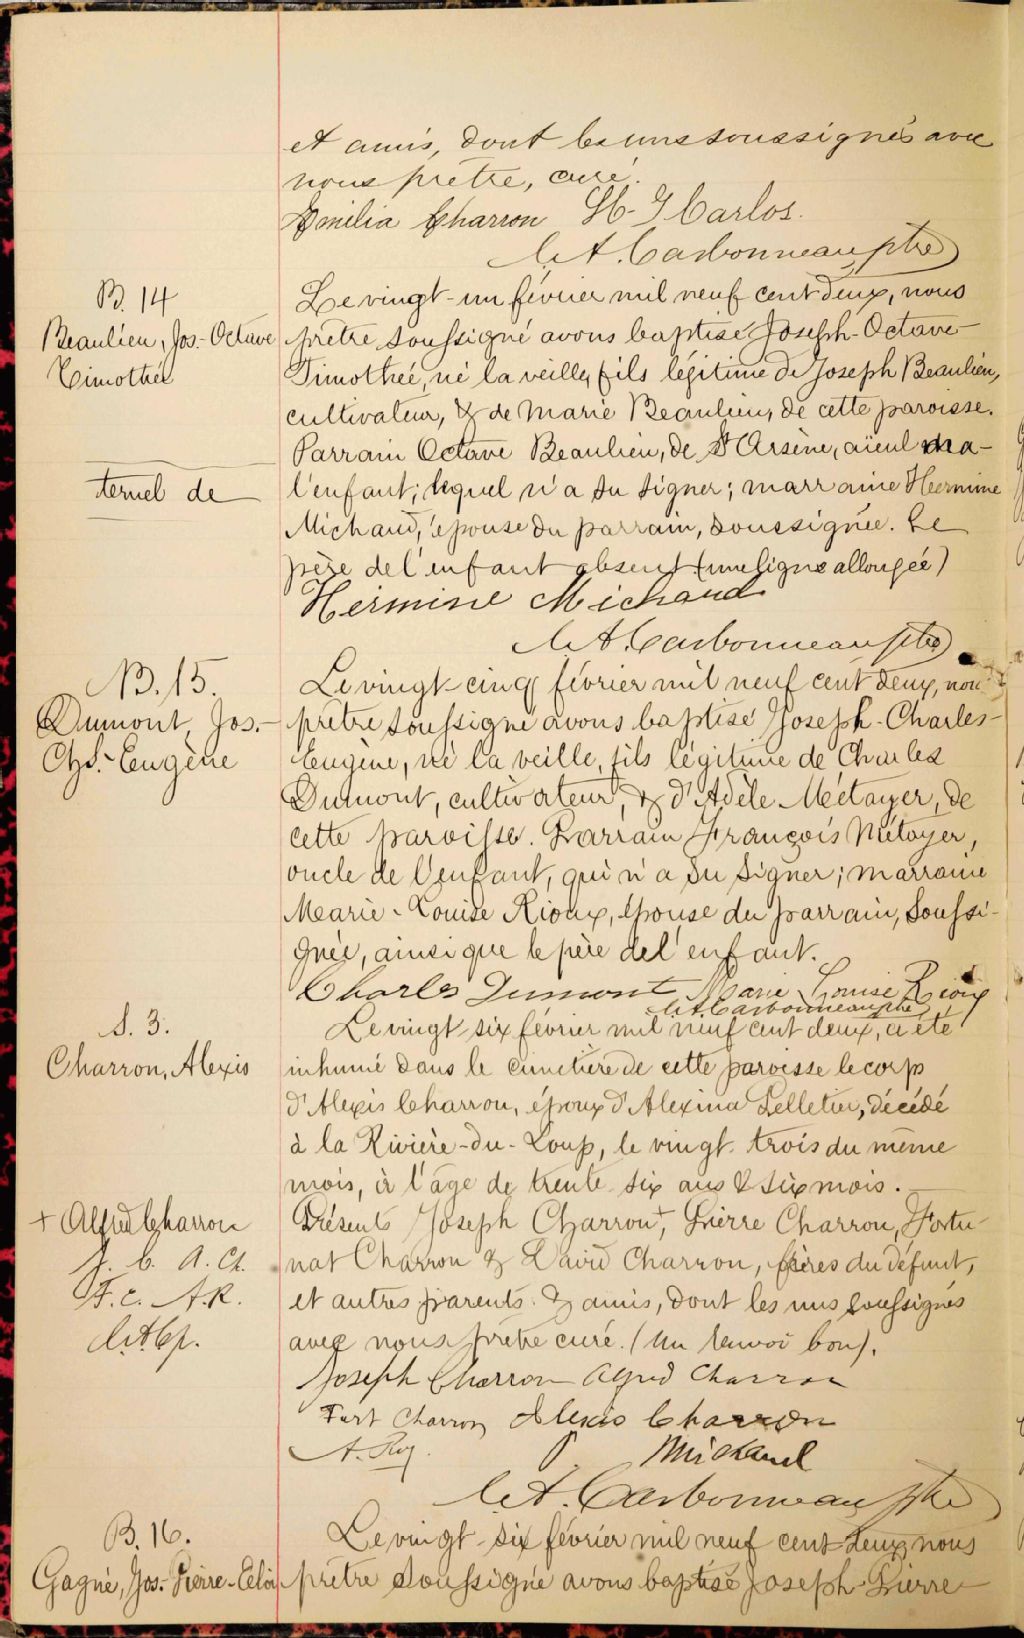 et amis, dont les uns soussignés avec
nous prêtre, curé.
Emilia Charron J Carlos.
C. A. Carbonneau, ptre
B. 14
Beaulieu, Jos.-Octave
Timothée
Le vingt-un février mil neuf cent deux, nous
prêtre soussigné avons baptisé Joseph-Octave-
Timothée, né la veille, fils légitime de Joseph Beaulieu,
cultivateur, & de Marie Beaulieu, de cette paroisse.
Parrain Octave Beaulieu, de St Arsène, aïeul ma-
ternel de
l'enfant; lequel n'a su signer; marraine Hermine
Michaud, épouse du parrain, soussignée. Le
père de l'enfant absent (une ligne allongée)
Hermine Michaud
C. A. Carbonneau, ptre
B. 15.
Dumont, Jos.-
Chs.-Eugène
Le vingt-cinq février mil neuf cent deux, nous
prêtre soussigné avons baptisé Joseph-Charles-
Eugène, né la veille, fils légitime de Charles
Dumont, cultivateur, & d'Adèle Métayer, de
cette paroisse. Parrain François Métayer,
oncle de l'enfant, qui n'a su signer; marraine
Marie-Louise Rioux, épouse du parrain, soussi-
gnée, ainsi que le père de l'enfant.
Charles Dumont Marie Louise Rioux
C. A. Carbonneau ptre
S. 3.
Charron, Alexis
Le vingt six février mil neuf cent deux, a été
inhumé dans le cimetière de cette paroisse le corps
d'Alexis Charron, époux d'Alexina Pelletier, décédé
à la Rivière-du-Loup, le vingt-trois du même
mois, à l'âge de trente-six ans & six mois.
+ Alfred Charron
J. C. A. Ch.
F. C. A. R.
C. A. C. p.
Présents Joseph Charron+, Pierre Charron, Fortu-
nat Charron & David Charron, frères du défunt,
et autres parents & amis, dont les uns soussignés
avec nous prêtre curé. (Un renvoi bon).
Joseph Charron Alfred Charron
Fort Charron Alexis Charron
A. Roy. P. Michaud
C. A. Carbonneau, ptre
B. 16.
Gagné, Jos.-Pierre-Eloi
Le vingt-six février mil neuf cent deux, nous
prêtre soussigné avons baptisé Joseph-Pierre-